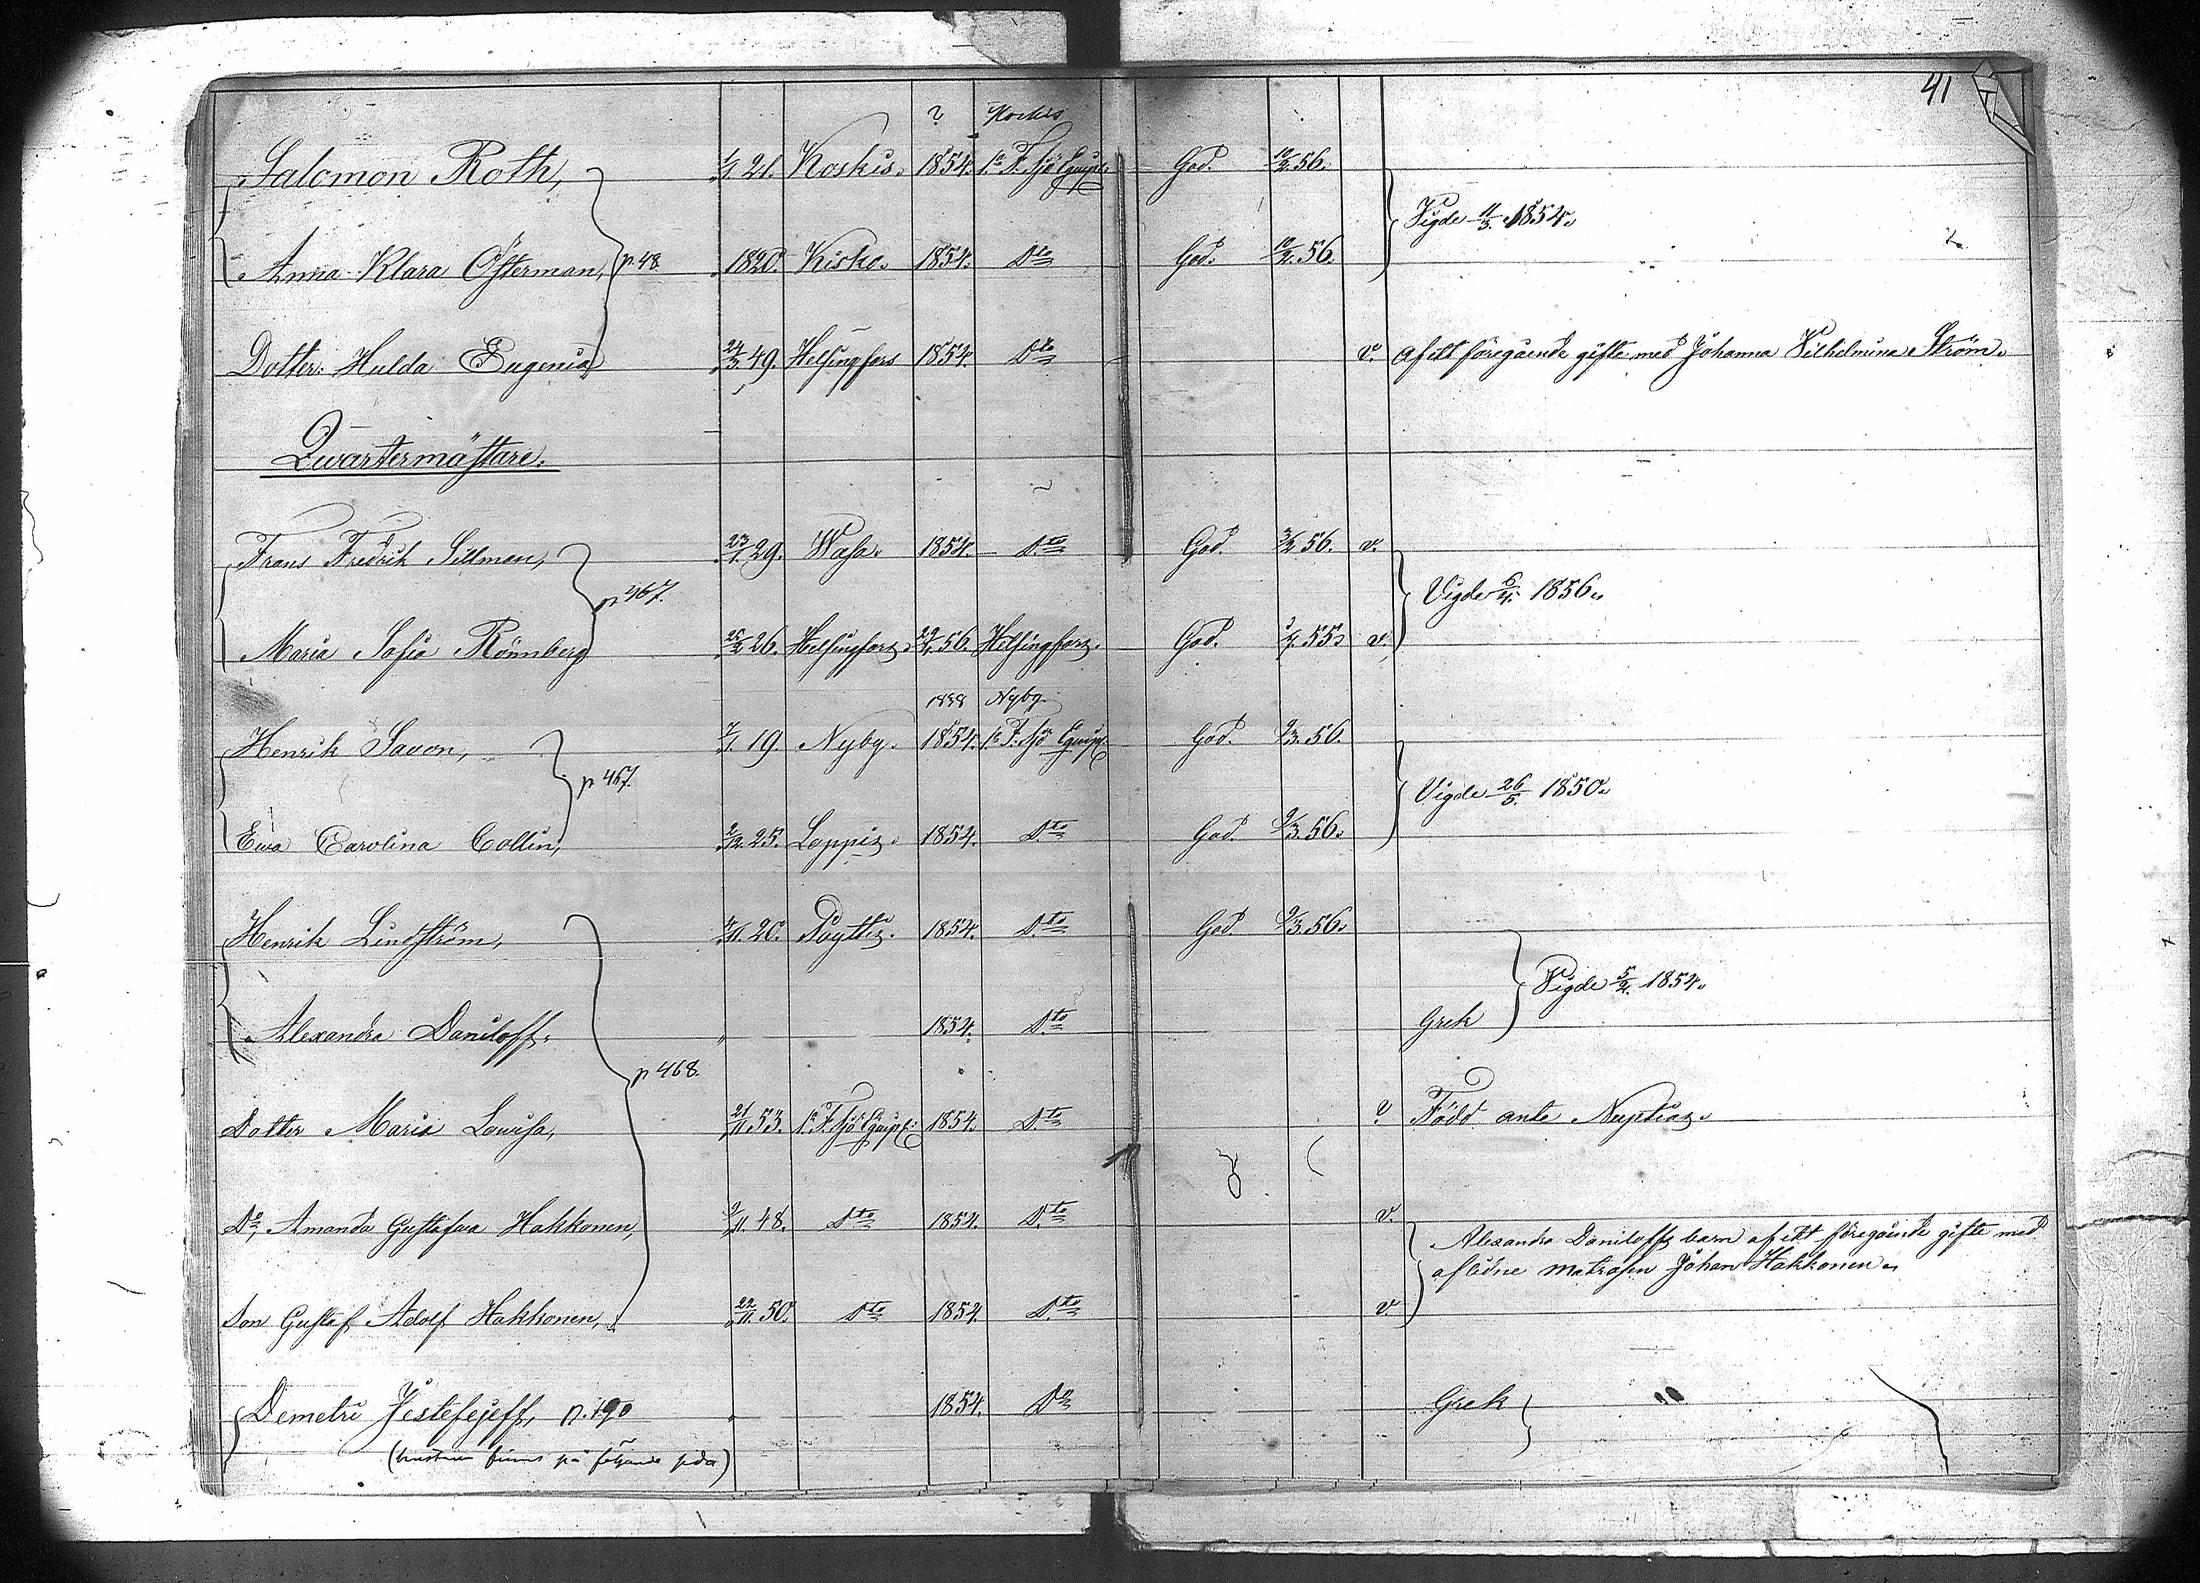 41
? Koskis
Salomon Roth, 1/1. 21. Koskis. 1854. 1a F. Sjö Equip. God. 10/2. 56.
Vigde 11/3. 1854.
Anna Klara Österman, p. 48 1820. Kisko. 1854. Dto God. 10/2. 56.
Dotter: Hulda Eugenia 24/3. 49. Helsingfors 1854. Dto v. af ett föregående gifte med Johanna Vilhelmina Ström.
Qwartermästare.
Frans Fredrik Sillman, 23/1. 29. Wasa. 1854. Dto God. 56. v.
p 467. Vigde 6/4. 1856.
Maria Sofia Rönnberg 26. Helsingfors. 56. Helsingfors. God. 55. v.
1838 Nyby.
Henrik Savon, 19. Nyby. 1854. 1a F. Sjö Equip. God. 9/3. 56.
p 467. Vigde 26/5. 1850.
Ewa Carolina Collin, 2/12. 25. Loppis. 1854. Dto God. 9/3. 56.
Henrik Lindström, 20. Pöyttis. 1854. Dto God. 9/3. 56.
Vigde 5/2. 1854.
Alexandra Daniloff, 1854. Dto Grek
p 468.
Dotter Maria Lovisa, 21/11. 53. 1a F. Sjö Equip. 1854. Dto v. Född ante Nuptias.
Do, Amanda Gustafva Hakkonen, 9/11. 48. Dto 1854. Dto v.
Alexandra Daniloffs barn af ett föregående gifte med
aflidne matrosen Johan Hakkonen.
Son Gustaf Adolf Hakkonen, 22/11. 50. Dto 1854. Dto v.
Demetri Jestefejeff, p. 190 1854. Do Grek
(hustrun finns på följande sida)